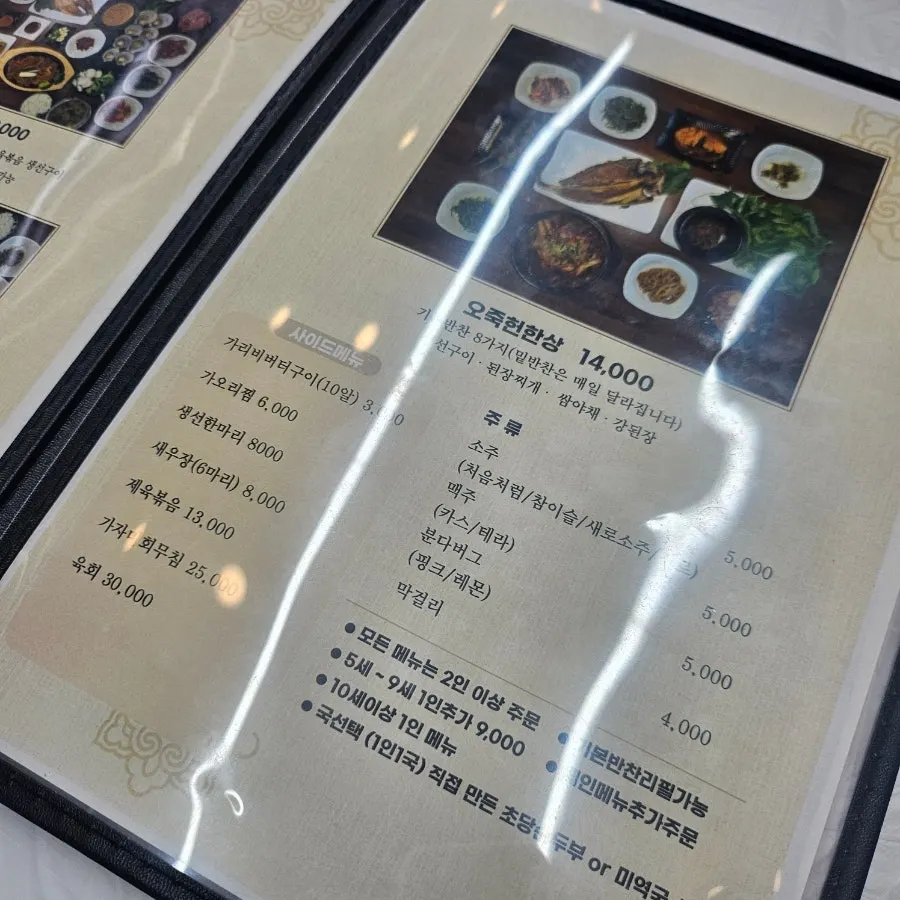 ,000
생선구이
오죽헌한상 14,000
반찬 8가지(밑반찬은 매일 달라집니다)
선구이 · 된장찌개 · 쌈야채 · 강된장
사이드메뉴
가리비버터구이(10알)
가오리찜 6,000
생선한마리 8000
새우장(6마리) 8,000
제육볶음 13,000
회무침
육회 30,000
주류
소주
(처음처럼/참이슬/새로소주/
5,000
맥주
(카스/테라)
5,000
분다버그
(핑크/레몬)
5,000
막걸리
4,000
● 모든 메뉴는 2인 이상 주문
● 5세 ~ 9세 1인추가 9,000
● 10세이상 1인 메뉴
● 국선택 (1인1국) 직접 만든 or 미역국
본반찬리필가능
인메뉴추가주문